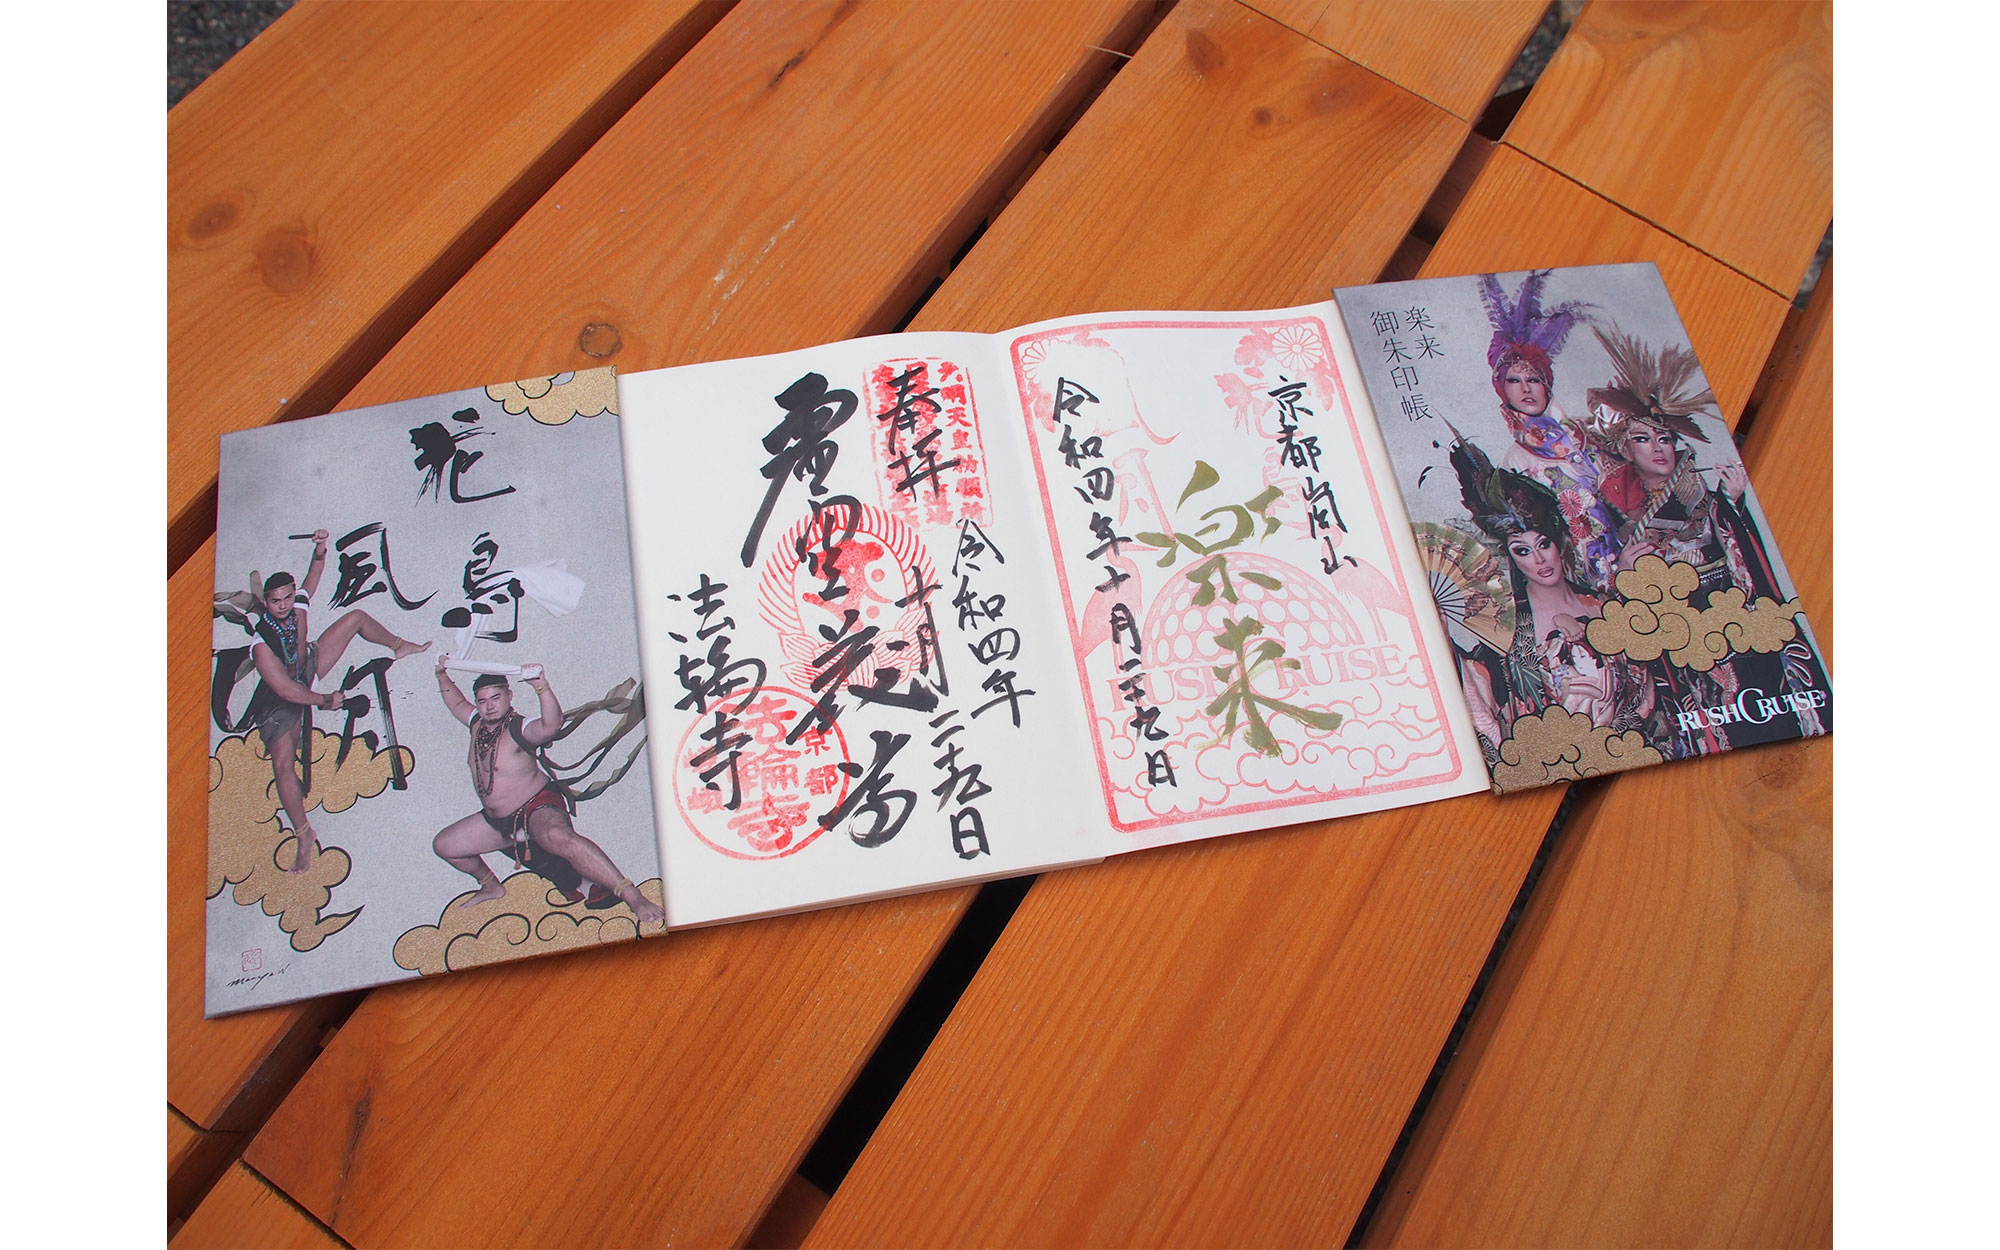 花鳥
風月
奉拝
令和四年
十月二十九日
虚空蔵尊
法輪寺
京都
嵯峨
法輪寺
京都嵐山
楽来
令和四年十月二十九日
花鳥
風月
RUSH CRUISE
楽来
御朱印帳
RUSH CRUISE